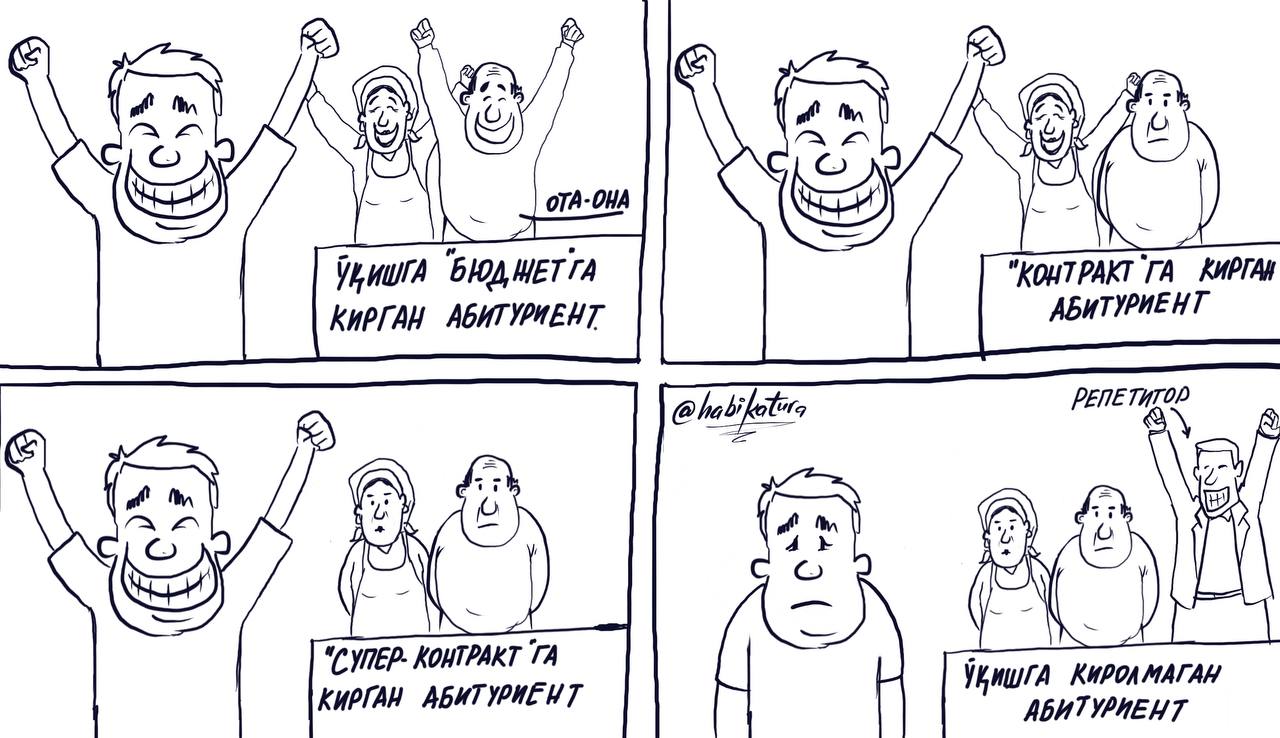 ОТА-ОНА
ЎҚИШГА "БЮДЖЕТ"ГА
КИРГАН АБИТУРИЕНТ.
"КОНТРАКТ"ГА КИРГАН
АБИТУРИЕНТ
"СУПЕР-КОНТРАКТ"ГА
КИРГАН АБИТУРИЕНТ
@habikatura
РЕПЕТИТОР
ЎҚИШГА КИРОЛМАГАН
АБИТУРИЕНТ